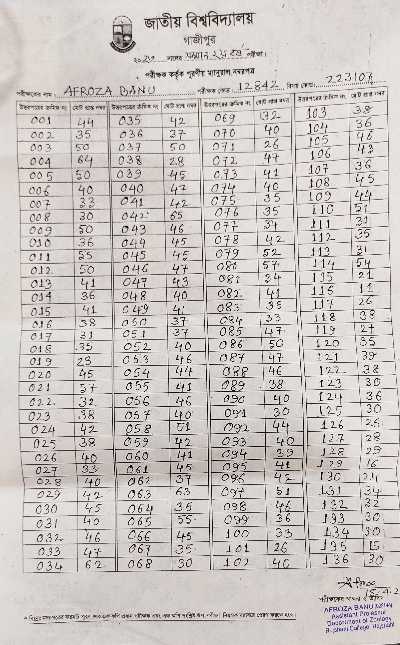 জাতীয় বিশ্ববিদ্যালয়
গাজীপুর
পরীক্ষক কর্তৃক পূরণীয় ম্যানুয়াল নম্বরপত্র
পরীক্ষকের নাম: AFROZA BANU পরীক্ষক কোড: 12842 বিষয় কোড: 223106
001 44 035 42 069 72 103 38
002 35 036 37 070 40 104 36
003 50 037 50 071 26 105 46
004 64 038 28 072 47 106 43
005 50 039 45 073 41 107 36
006 40 040 47 074 40 108 45
007 33 041 42 075 35 109 44
008 30 042 65 076 35 110 51
009 50 043 46 077 34 111 31
010 36 044 45 078 42 112 35
011 55 045 45 079 52 113 31
012 50 046 47 080 57 114 54
013 41 047 43 081 34 115 21
014 36 048 40 082 41 116 11
015 41 049 083 35 117 26
016 38 050 37 084 33 118 38
017 31 051 37 085 47 119 27
018 35 052 40 086 50 120 35
019 23 053 46 087 47 121 39
020 45 054 44 088 46 122 38
021 37 055 41 089 38 123 30
022 32 056 46 090 40 124 36
023 38 057 40 091 30 125 30
024 42 058 51 092 44 126 26
025 38 059 42 093 40 127 28
026 40 060 41 094 39 128 29
027 33 061 45 095 41 129 16
028 40 062 37 096 42 130 24
029 42 063 63 097 51 131 34
030 45 064 35 098 46 132 32
031 40 065 55 099 36 133 30
032 46 066 45 100 33 134 30
033 47 067 35 101 26 135 15
034 62 068 30 102 40 136 30
AFROZA BANU
Assistant Professor
Department of Zoology
Rajshahi College, Rajshahi